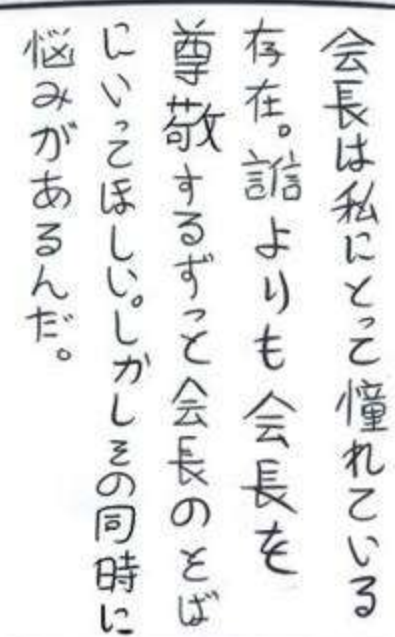 会長は私にとって憧れている
存在。誰よりも会長を
尊敬するずっと会長のとば
にいってほしい。しかしその同時に
悩みがあるんだ。